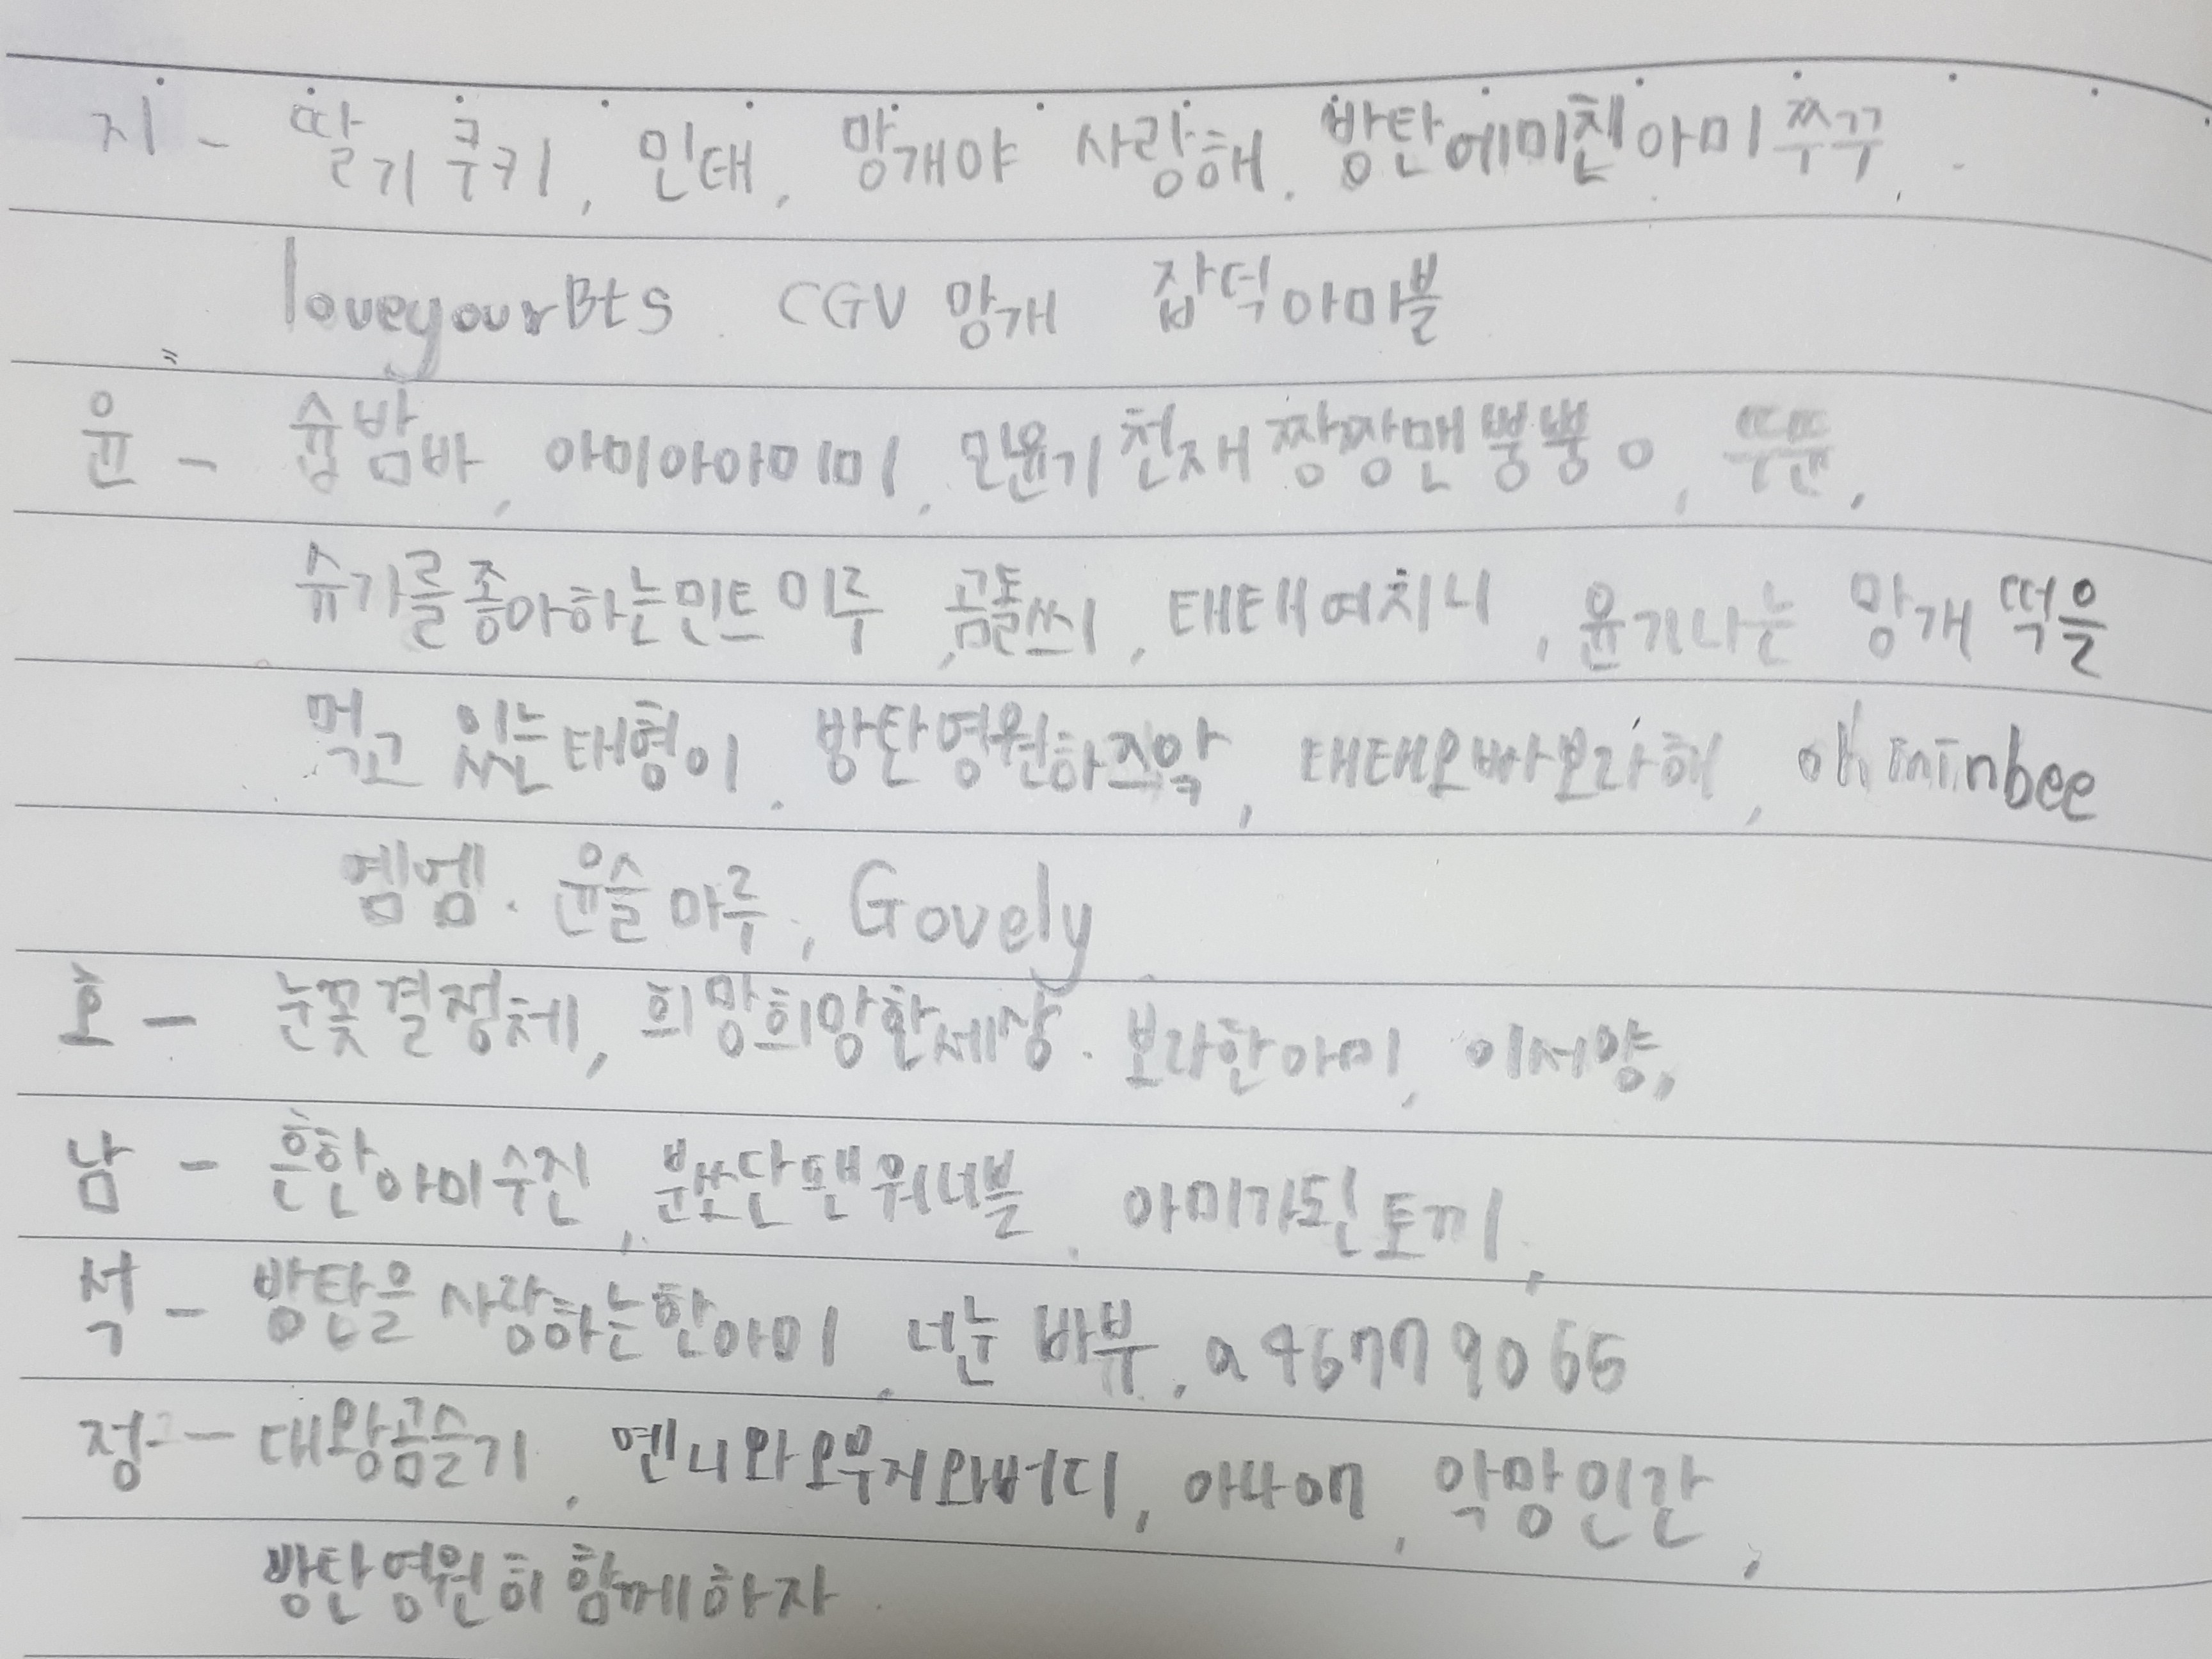 지 - 딸기쿠키, 민대, 망개야 사랑해. 방탄에미친아미쭈꾸,
loveyourBts. CGV망개 잡덕아미블
윤 - 슙밤바, 아미아아미미, 민윤기천재짱짱맨뿡뿡ㅇ,
슈가를좋아하는민트미루, 곰돌쓰, 태태여치니, 윤기나는 망개떡을
먹고 있는태형이. 방탄영원하즈악, 태태오빠보라해,
옘엠. 윤슬마루, Govely
호 - 눈꽃결정체, 희망희망한세상. 보라한아미, 이서양,
남 - 흔한아미수진, 분쏘단팬워너블. 아미가된토끼,
석 - 방탄을사랑하는한아미, 너눈 바뷰, a467779065
정 - 대왕곰슬기, 옌니와오무지와버디, 아나애, 악망인간,
방탄영원히함께하자.